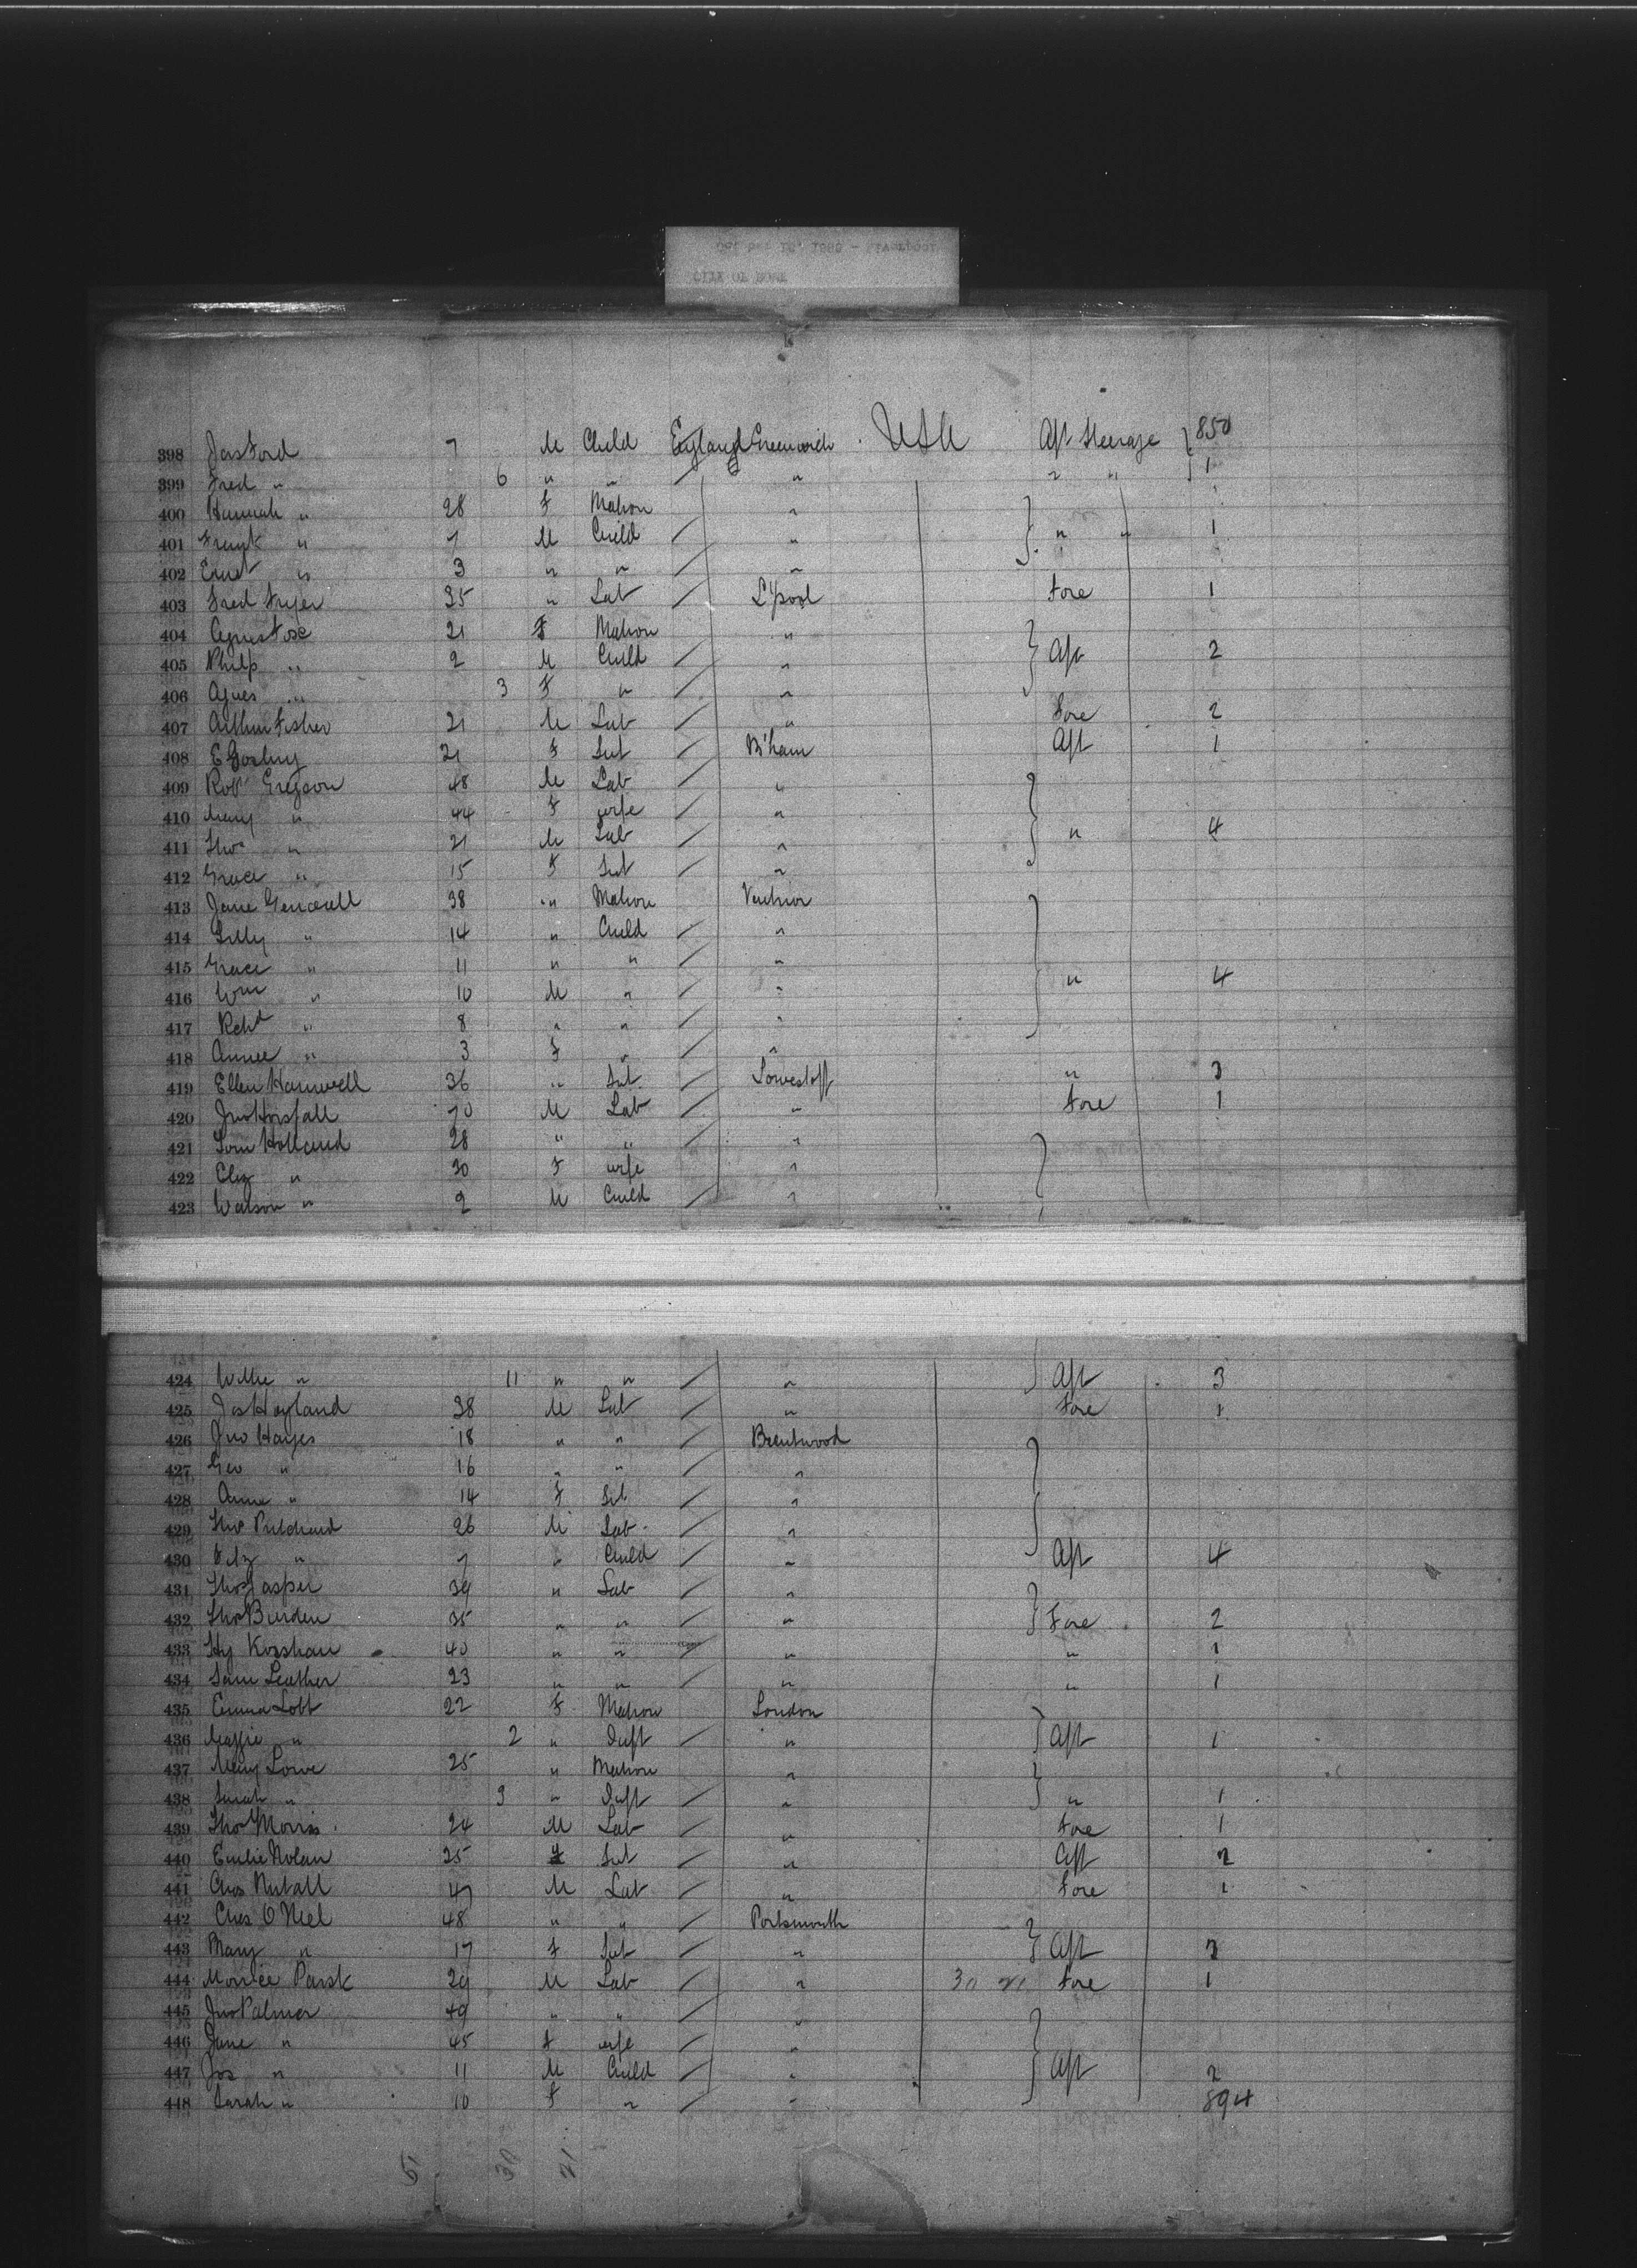 398 Jas Ford 7 M Child England Greenwich USA Aft Steerage 850
399 Fred " 6 " " " " " 1
400 Hannah " 28 F Matron "
401 Frank " 7 M Child " " " 1
402 Ernest " 3 " " "
403 Fred Fryer 35 " Lab L'pool Fore 1
404 Agnes Fox 21 F Matron "
405 Philp " 2 M Child " Aft 2
406 Agnes " 3 F " "
407 Arthur Fisher 21 M Lab " Fore 2
408 E 21 F Sut B'ham Aft 1
409 Robt Gregson 48 M Lab "
410 Mary " 44 F wife "
411 Thos " 21 M Lab " " 4
412 Grace " 15 F Sut "
413 Jane 38 " Matron Ventnor
414 Lilly " 14 " Child "
415 Grace " 11 " " "
416 Wm " 10 M " " " 4
417 Rchd " 8 " " "
418 Annie " 3 F " "
419 Ellen Hanwell 36 " Sut Lowestoft " 3
420 Jno Horsfall 70 M Lab " Fore 1
421 Tom Holland 28 " " "
422 Eliz " 30 F wife "
423 Watson " 2 M Child "
424 Willie " 11 " " " Aft 3
425 Jas Hoyland 38 M Lab " Fore 1
426 Jno Hayes 18 " " Brentwood
427 Geo " 16 " " "
428 Anne " 14 F Sut "
429 Thos Pritchard 26 M Lab "
430 " 7 " Child " Aft 4
431 Thos Jasper 39 " Lab "
432 Thos Burden 35 " " " Fore 2
433 Hy Kershaw 40 " " " " 1
434 Sam Leather 23 " " " " 1
435 Emma Lobb 22 F Matron London
436 Maggie " 2 " Inft " Aft 1
437 Mary Lowe 25 " Matron "
438 Sarah " 9 " Inft " " 1
439 Thos Morris 24 M Lab " Fore 1
440 Emilie Nolan 25 F Sut " Aft 2
441 Chas Nutall 47 M Lab " Fore 1
442 Chas O Niel 48 " " Portsmouth
443 Mary " 17 F Sut " Aft 2
444 29 M Lab " 30 21 Fore 1
445 Jno Palmer 49 " " "
446 Jane " 45 F wife "
447 Jos " 11 M Child " Aft 2
448 Sarah " 10 F " " 894
51 30 21